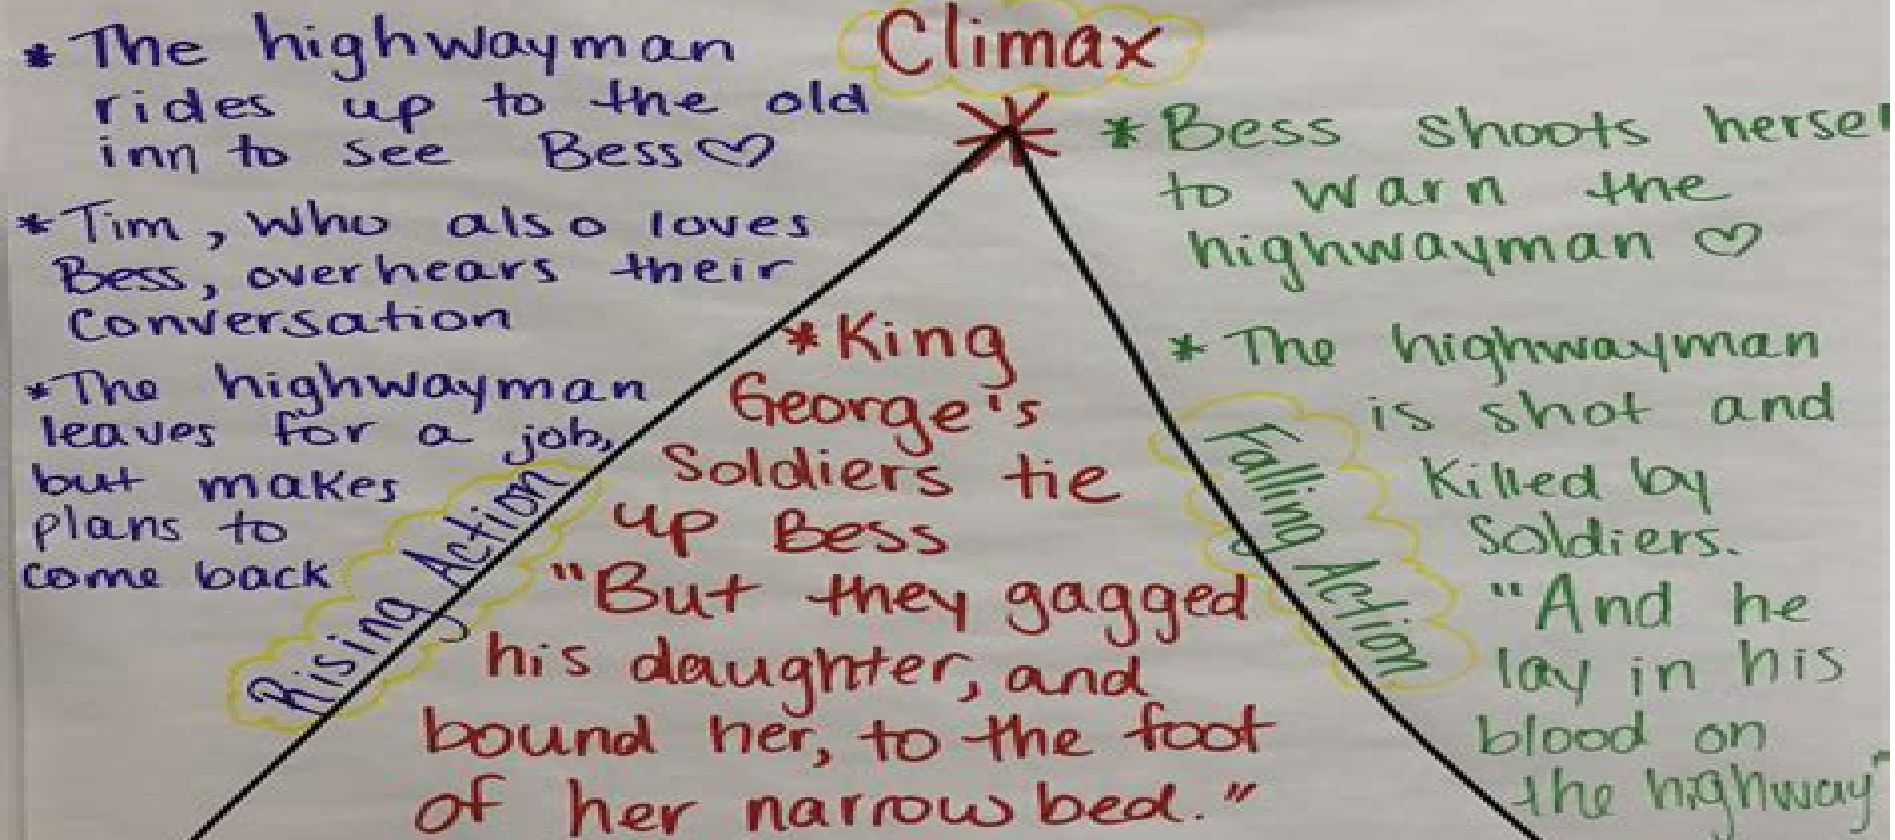 * The highwayman
rides up to the old
inn to see Bess♡
* Tim, who also loves
Bess, overhears their
conversation
* The highwayman
leaves for a job,
but makes
plans to
come back
Rising Action
Climax
* King
George's
Soldiers tie
up Bess
"But they gagged
his daughter, and
bound her, to the foot
of her narrow bed."
* Bess shoots hersel
to warn the
highwayman ♡
Falling Action
* The highwayman
is shot and
killed by
Soldiers.
"And he
lay in his
blood on
the highway"